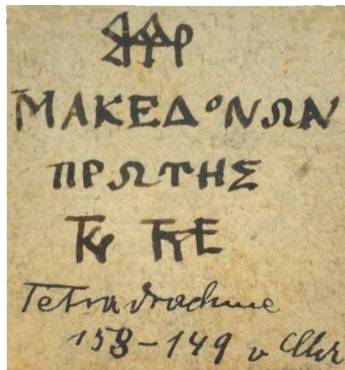 ΜΑΚΕΔΟΝΩΝ
ΠΡΩΤΗΣ
Tetradrachme
158-149 v Chr